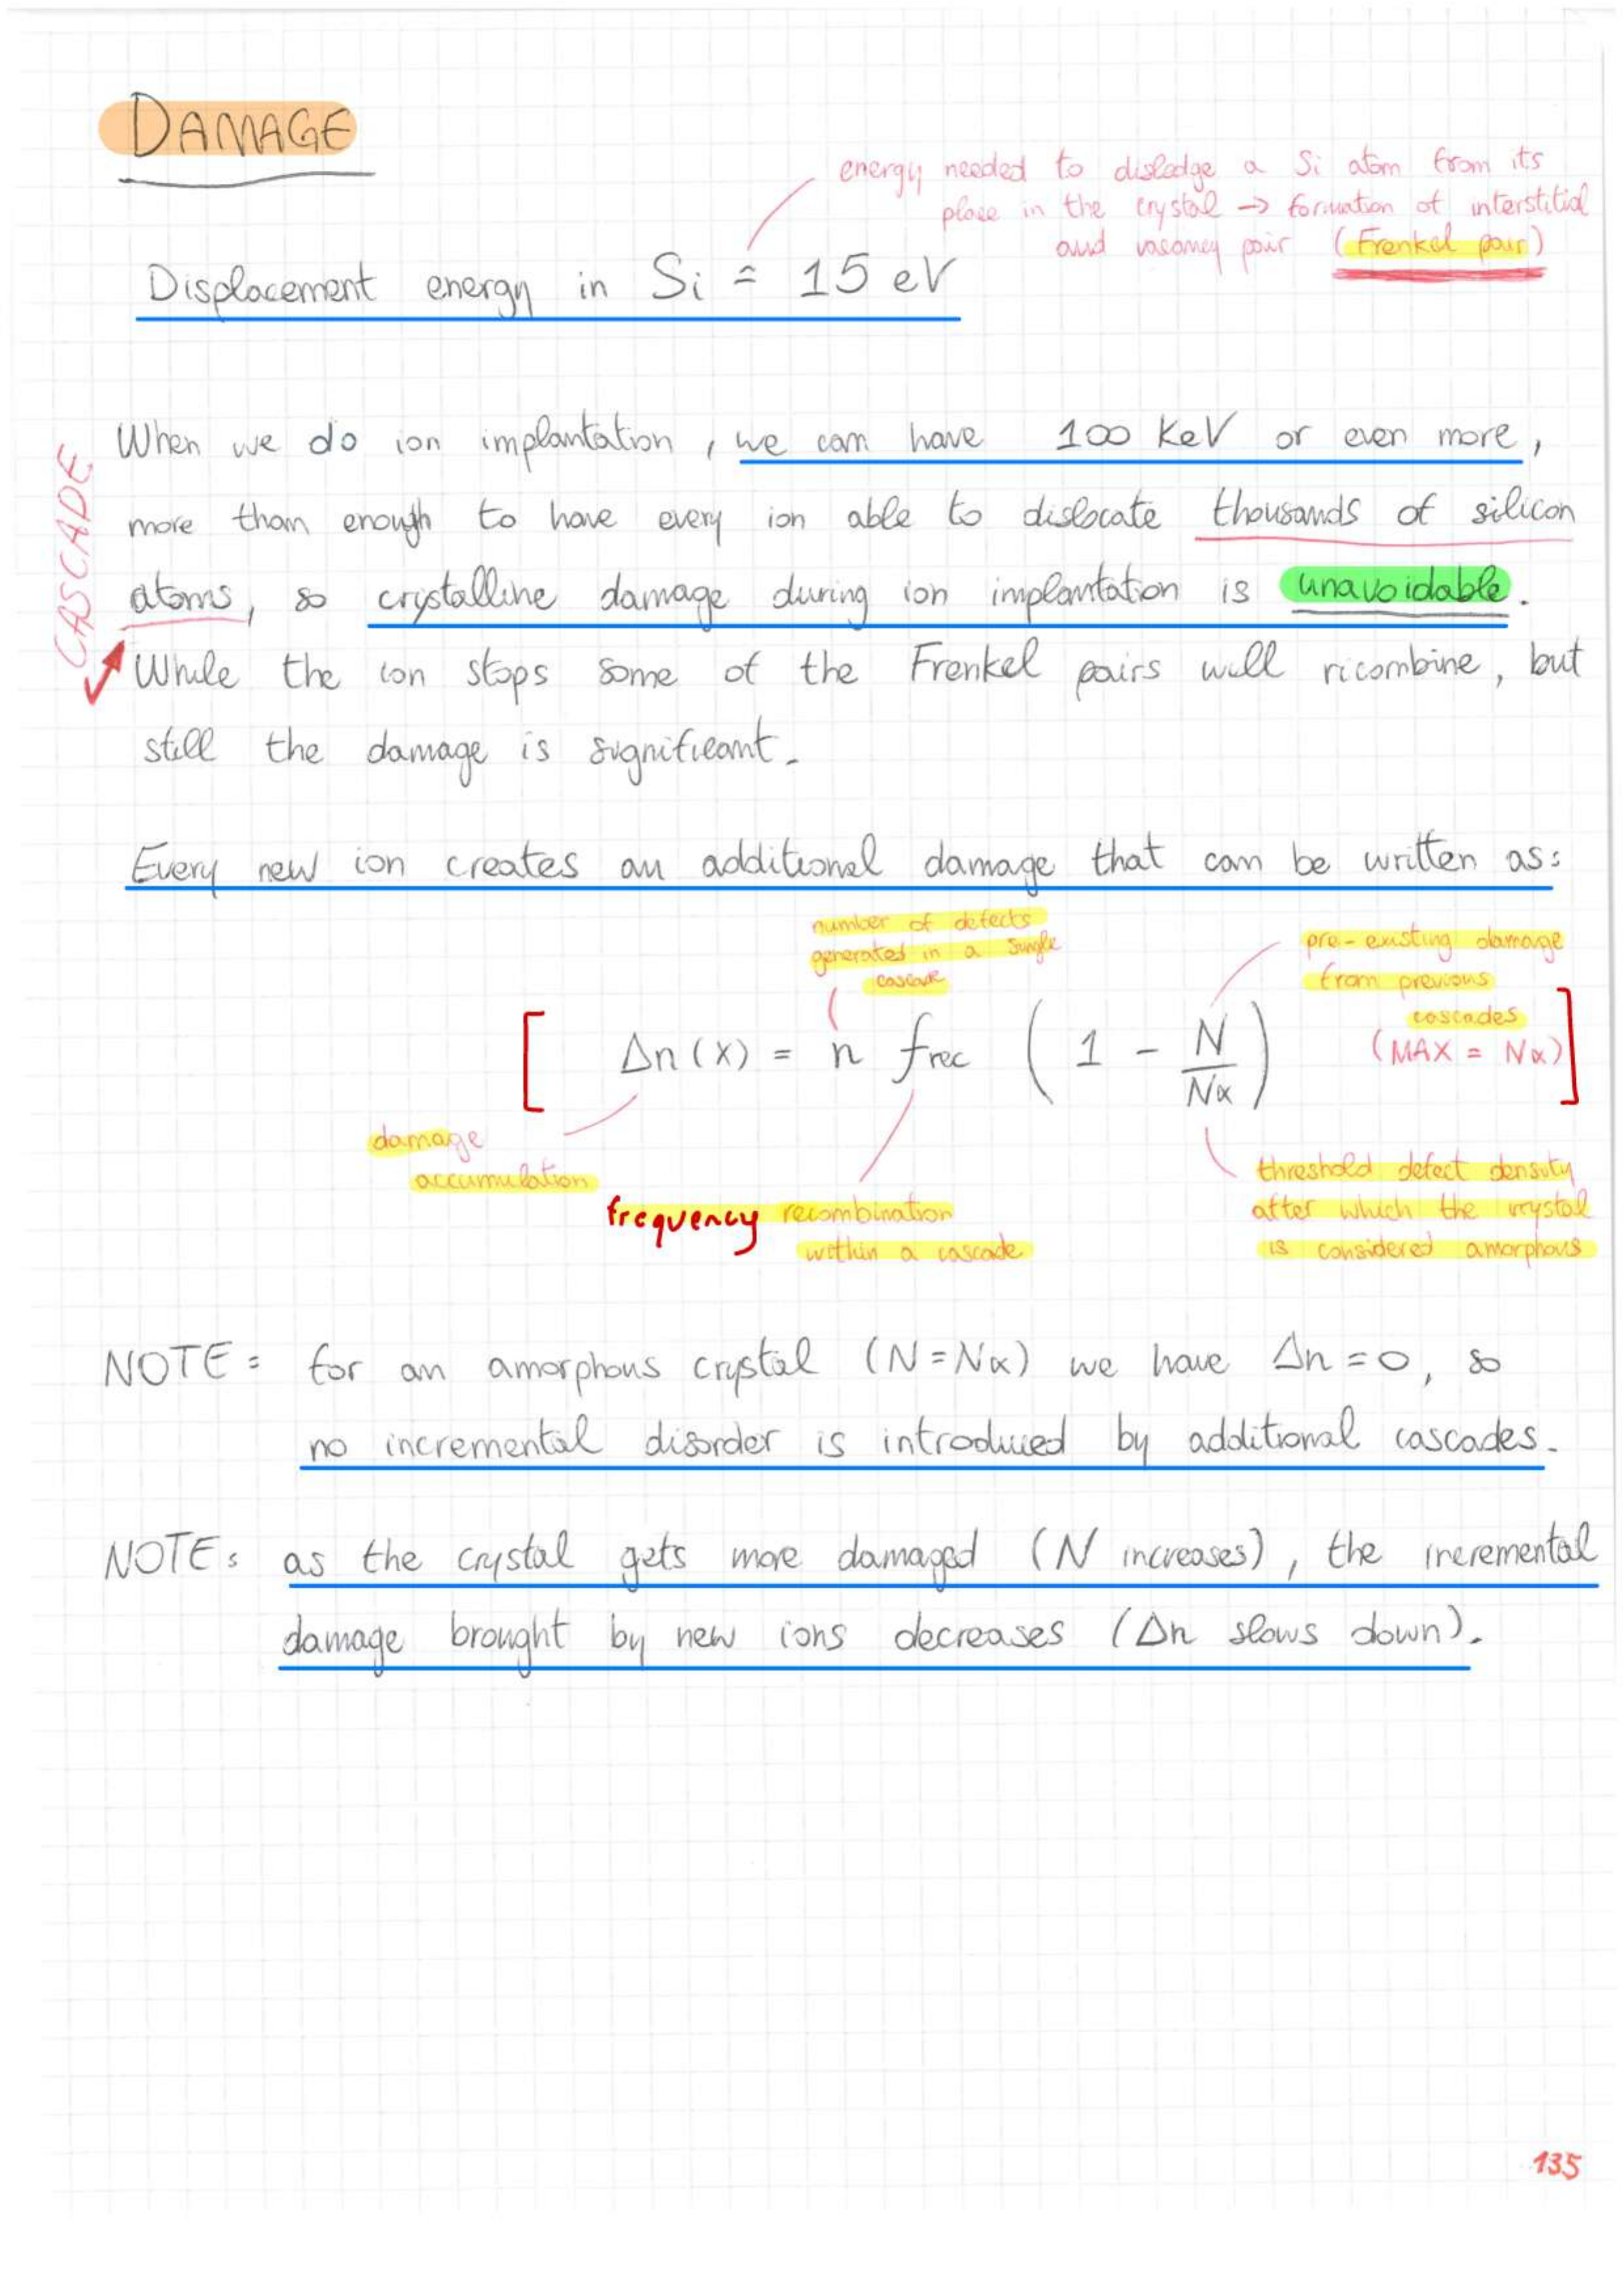 DAMAGE
energy needed to disledge a Si atom from its
place in the crystal → formation of interstitial
and vacancy pair (Frenkel pair)
Displacement energy in Si = 15 eV
CASCADE
When we do ion implantation, we can have 100 KeV or even more,
more than enough to have every ion able to dislocate thousands of silicon
atoms, so crystalline damage during ion implantation is unavoidable.
While the ion stops some of the Frenkel pairs will ricombine, but
still the damage is significant.
Every new ion creates an additional damage that can be written as:
number of defects
generated in a single
cascade
pre-existing damage
from previous
cascades
(MAX = Nα)
[ Δn(x) = n frec ( 1 - N/Nα ) ]
damage
accumulation
frequency recombination
within a cascade
threshold defect density
after which the crystal
is considered amorphous
NOTE: for an amorphous crystal (N=Nα) we have Δn=0, so
no incremental disorder is introduced by additional cascades.
NOTE: as the crystal gets more damaged (N increases), the incremental
damage brought by new ions decreases (Δn slows down).
135